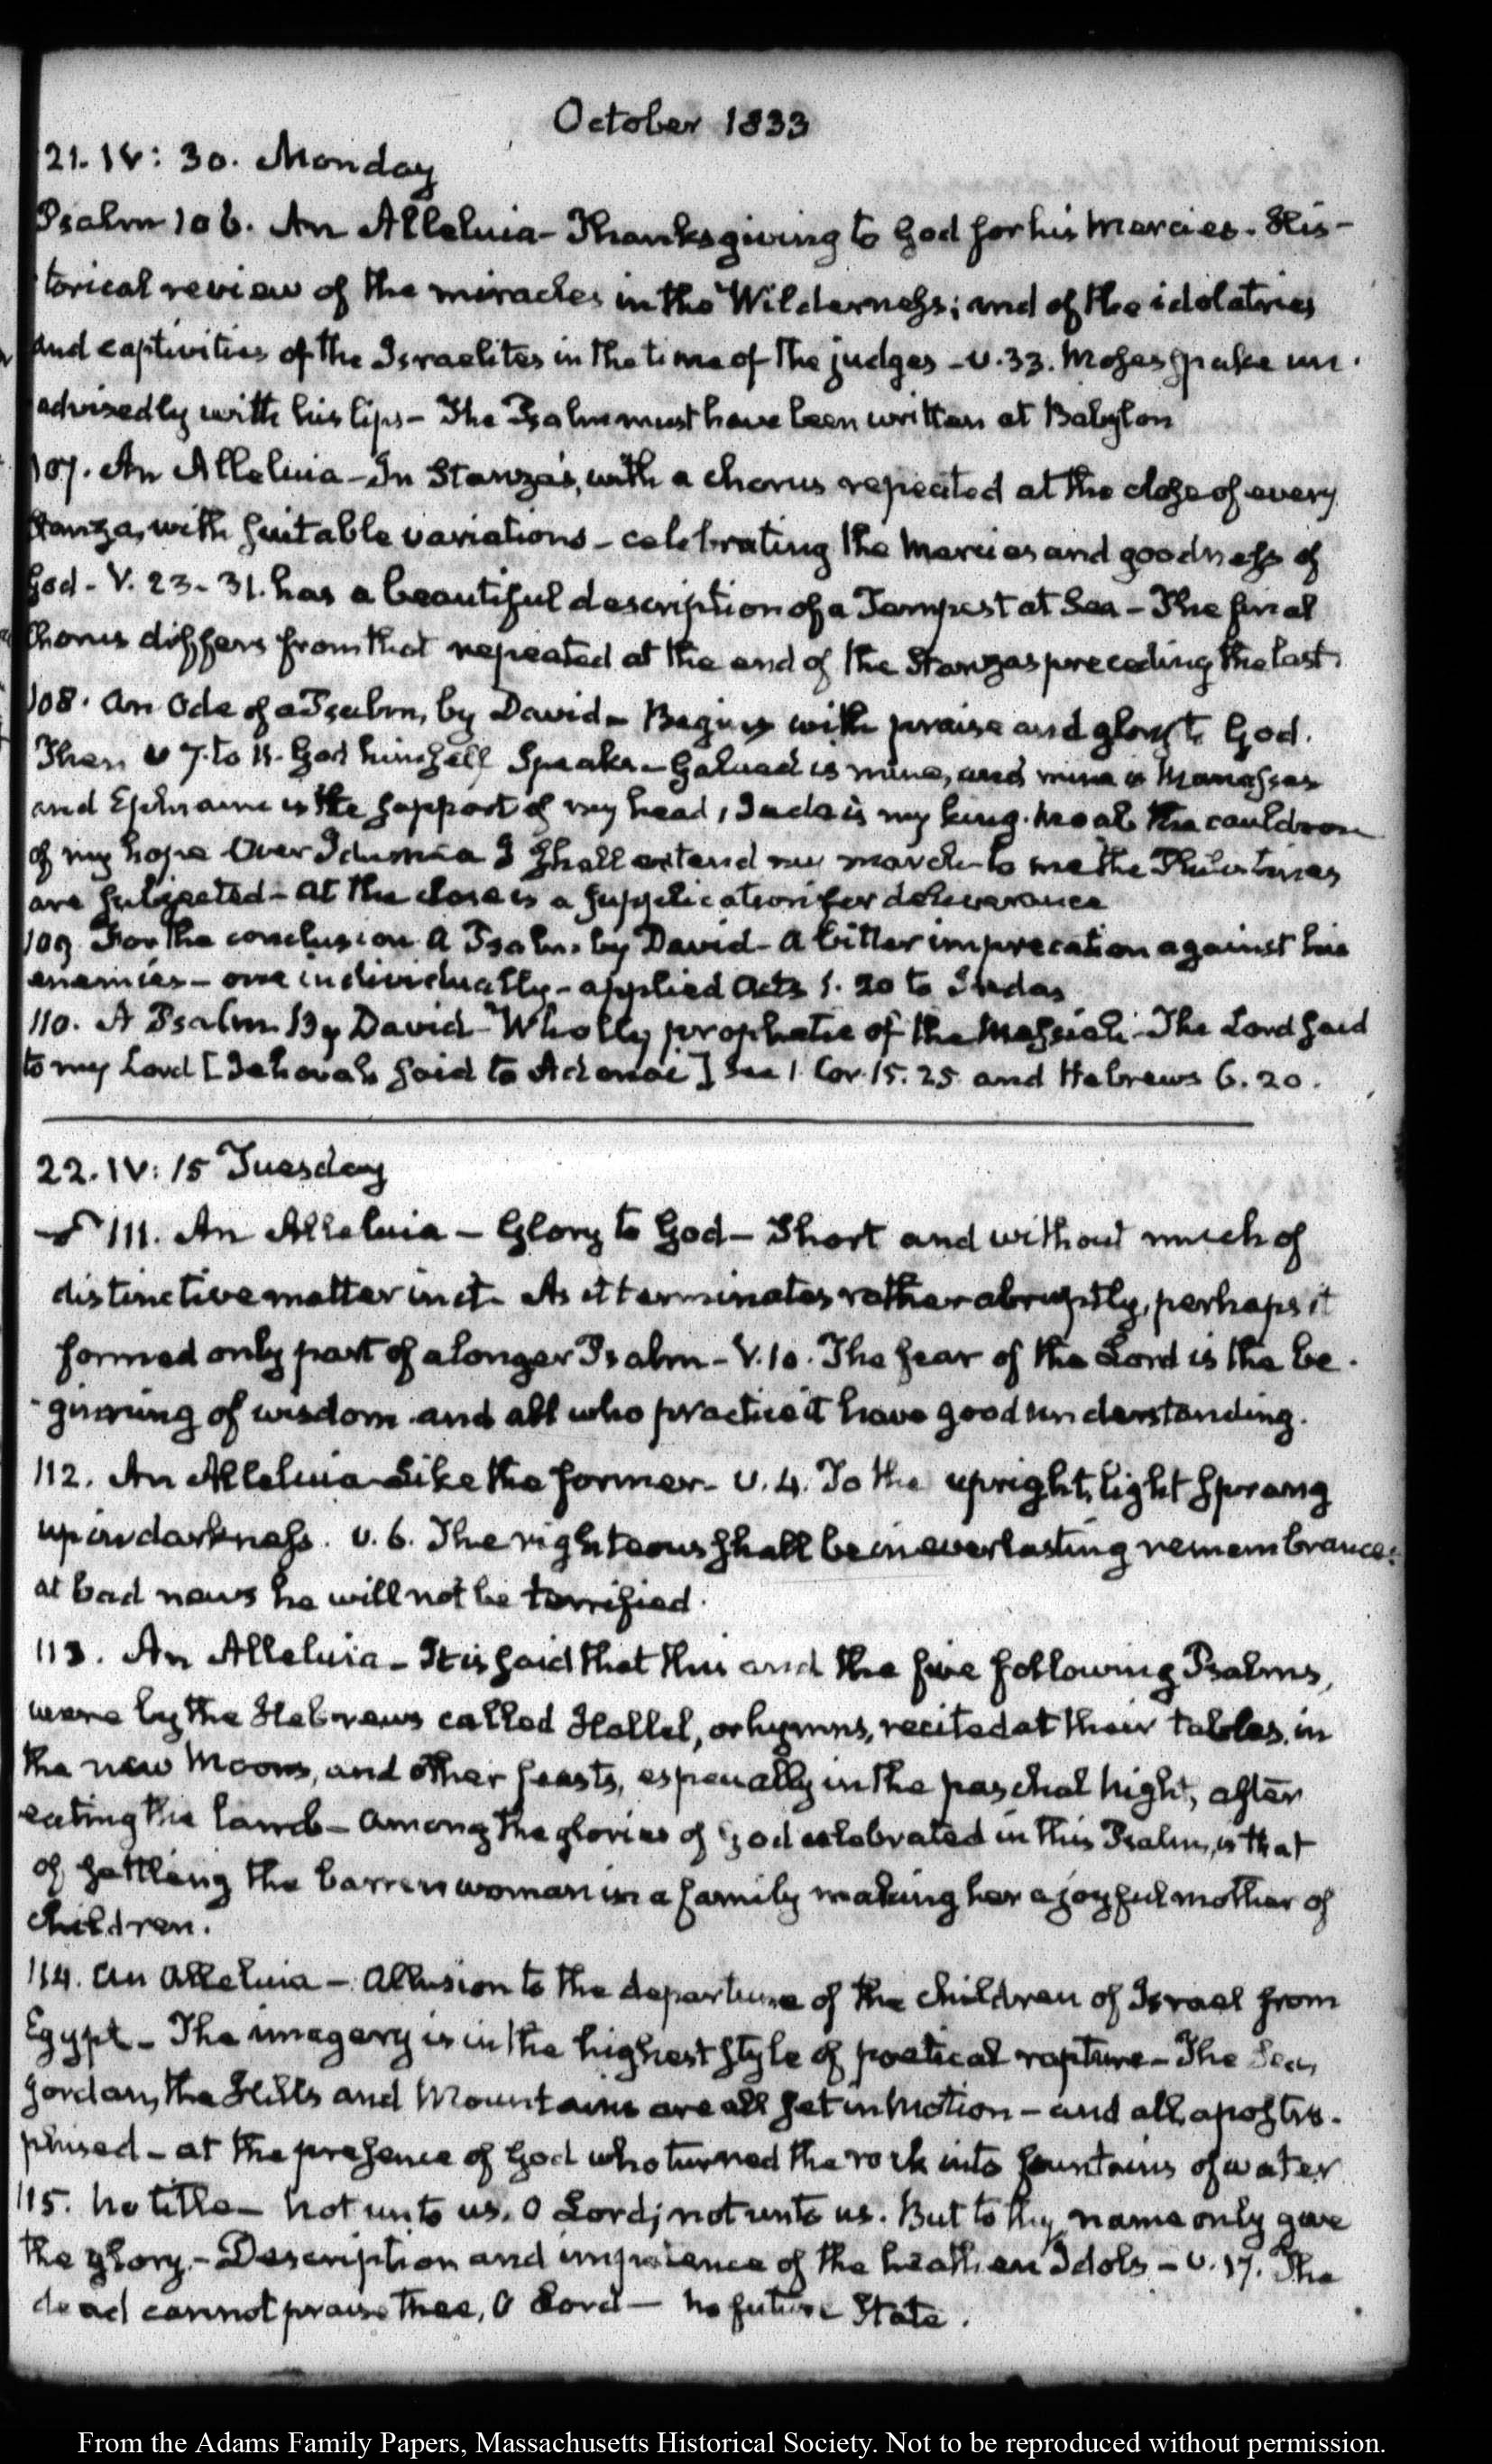 October 1833
21. IV: 30. Monday
Psalm 106. An Alleluia - Thanksgiving to God for his Mercies. His-
torical review of the miracles in the Wilderness; and of the idolatries
and captivities of the Israelites in the time of the judges - v. 33. Moses spake un-
advisedly with his lips - The Psalm must have been written at Babylon
107. An Alleluia - In Stanza's, with a chorus repeated at the close of every
Stanza, with suitable variations - celebrating the Mercies and goodness of
God - V. 23-31. has a beautiful description of a Tempest at Sea - The final
Chorus differs from that repeated at the end of the Stanzas preceding the last.
108. An Ode of a Psalm, by David - Begins with praise and glory to God.
Then v 7. to 11. God himself Speaks - Galaad is mine, and mine is Manasses
and Ephraim is the support of my head, Juda is my king. Moab the cauldron
of my hope Over Idumea I shall extend my march to me the Philistines
are subjected - at the close is a supplication for deliverance
109 For the conclusion. A Psalm by David - A bitter imprecation against his
enemies - one individually - applied Acts 1. 20 to Judas
110. A Psalm By David - Wholly prophetic of the Messiah. The Lord said
to my Lord [Jehovah said to Adonai] See 1. Cor. 15. 25 and Hebrews 6. 20.
22. IV: 15 Tuesday
111. An Alleluia - Glory to God - Short and without much of
distinctive matter in it. As it terminates rather abruptly, perhaps it
formed only part of a longer Psalm - V. 10. The fear of the Lord is the be-
ginning of wisdom and all who practice it have good understanding.
112. An Alleluia Like the former. v. 4. To the upright, light sprang
up in darkness. v. 6. The righteous shall be in everlasting remembrance:
at bad news he will not be terrified.
113. An Alleluia - It is said that this and the five following Psalms,
were by the Hebrews called Hallel, or hymns, recited at their tables, in
the new Moons, and other feasts, especially in the paschal night, after
eating the lamb - Among the glories of God celebrated in this Psalm, is that
of settling the barren woman in a family making her a joyful mother of
Children.
114. An Alleluia - Allusion to the departure of the Children of Israel from
Egypt - The imagery is in the highest style of poetical rapture - The Sea,
Jordan, the Hills and Mountains are all set in motion - and all apostro-
phised - at the presence of God who turned the rock into fountains of water
115. No title - Not unto us, O Lord; not unto us. But to thy name only give
the glory. - Description and impotence of the heathen Idols - v. 17. The
dead cannot praise thee, O Lord - No future State.
From the Adams Family Papers, Massachusetts Historical Society. Not to be reproduced without permission.